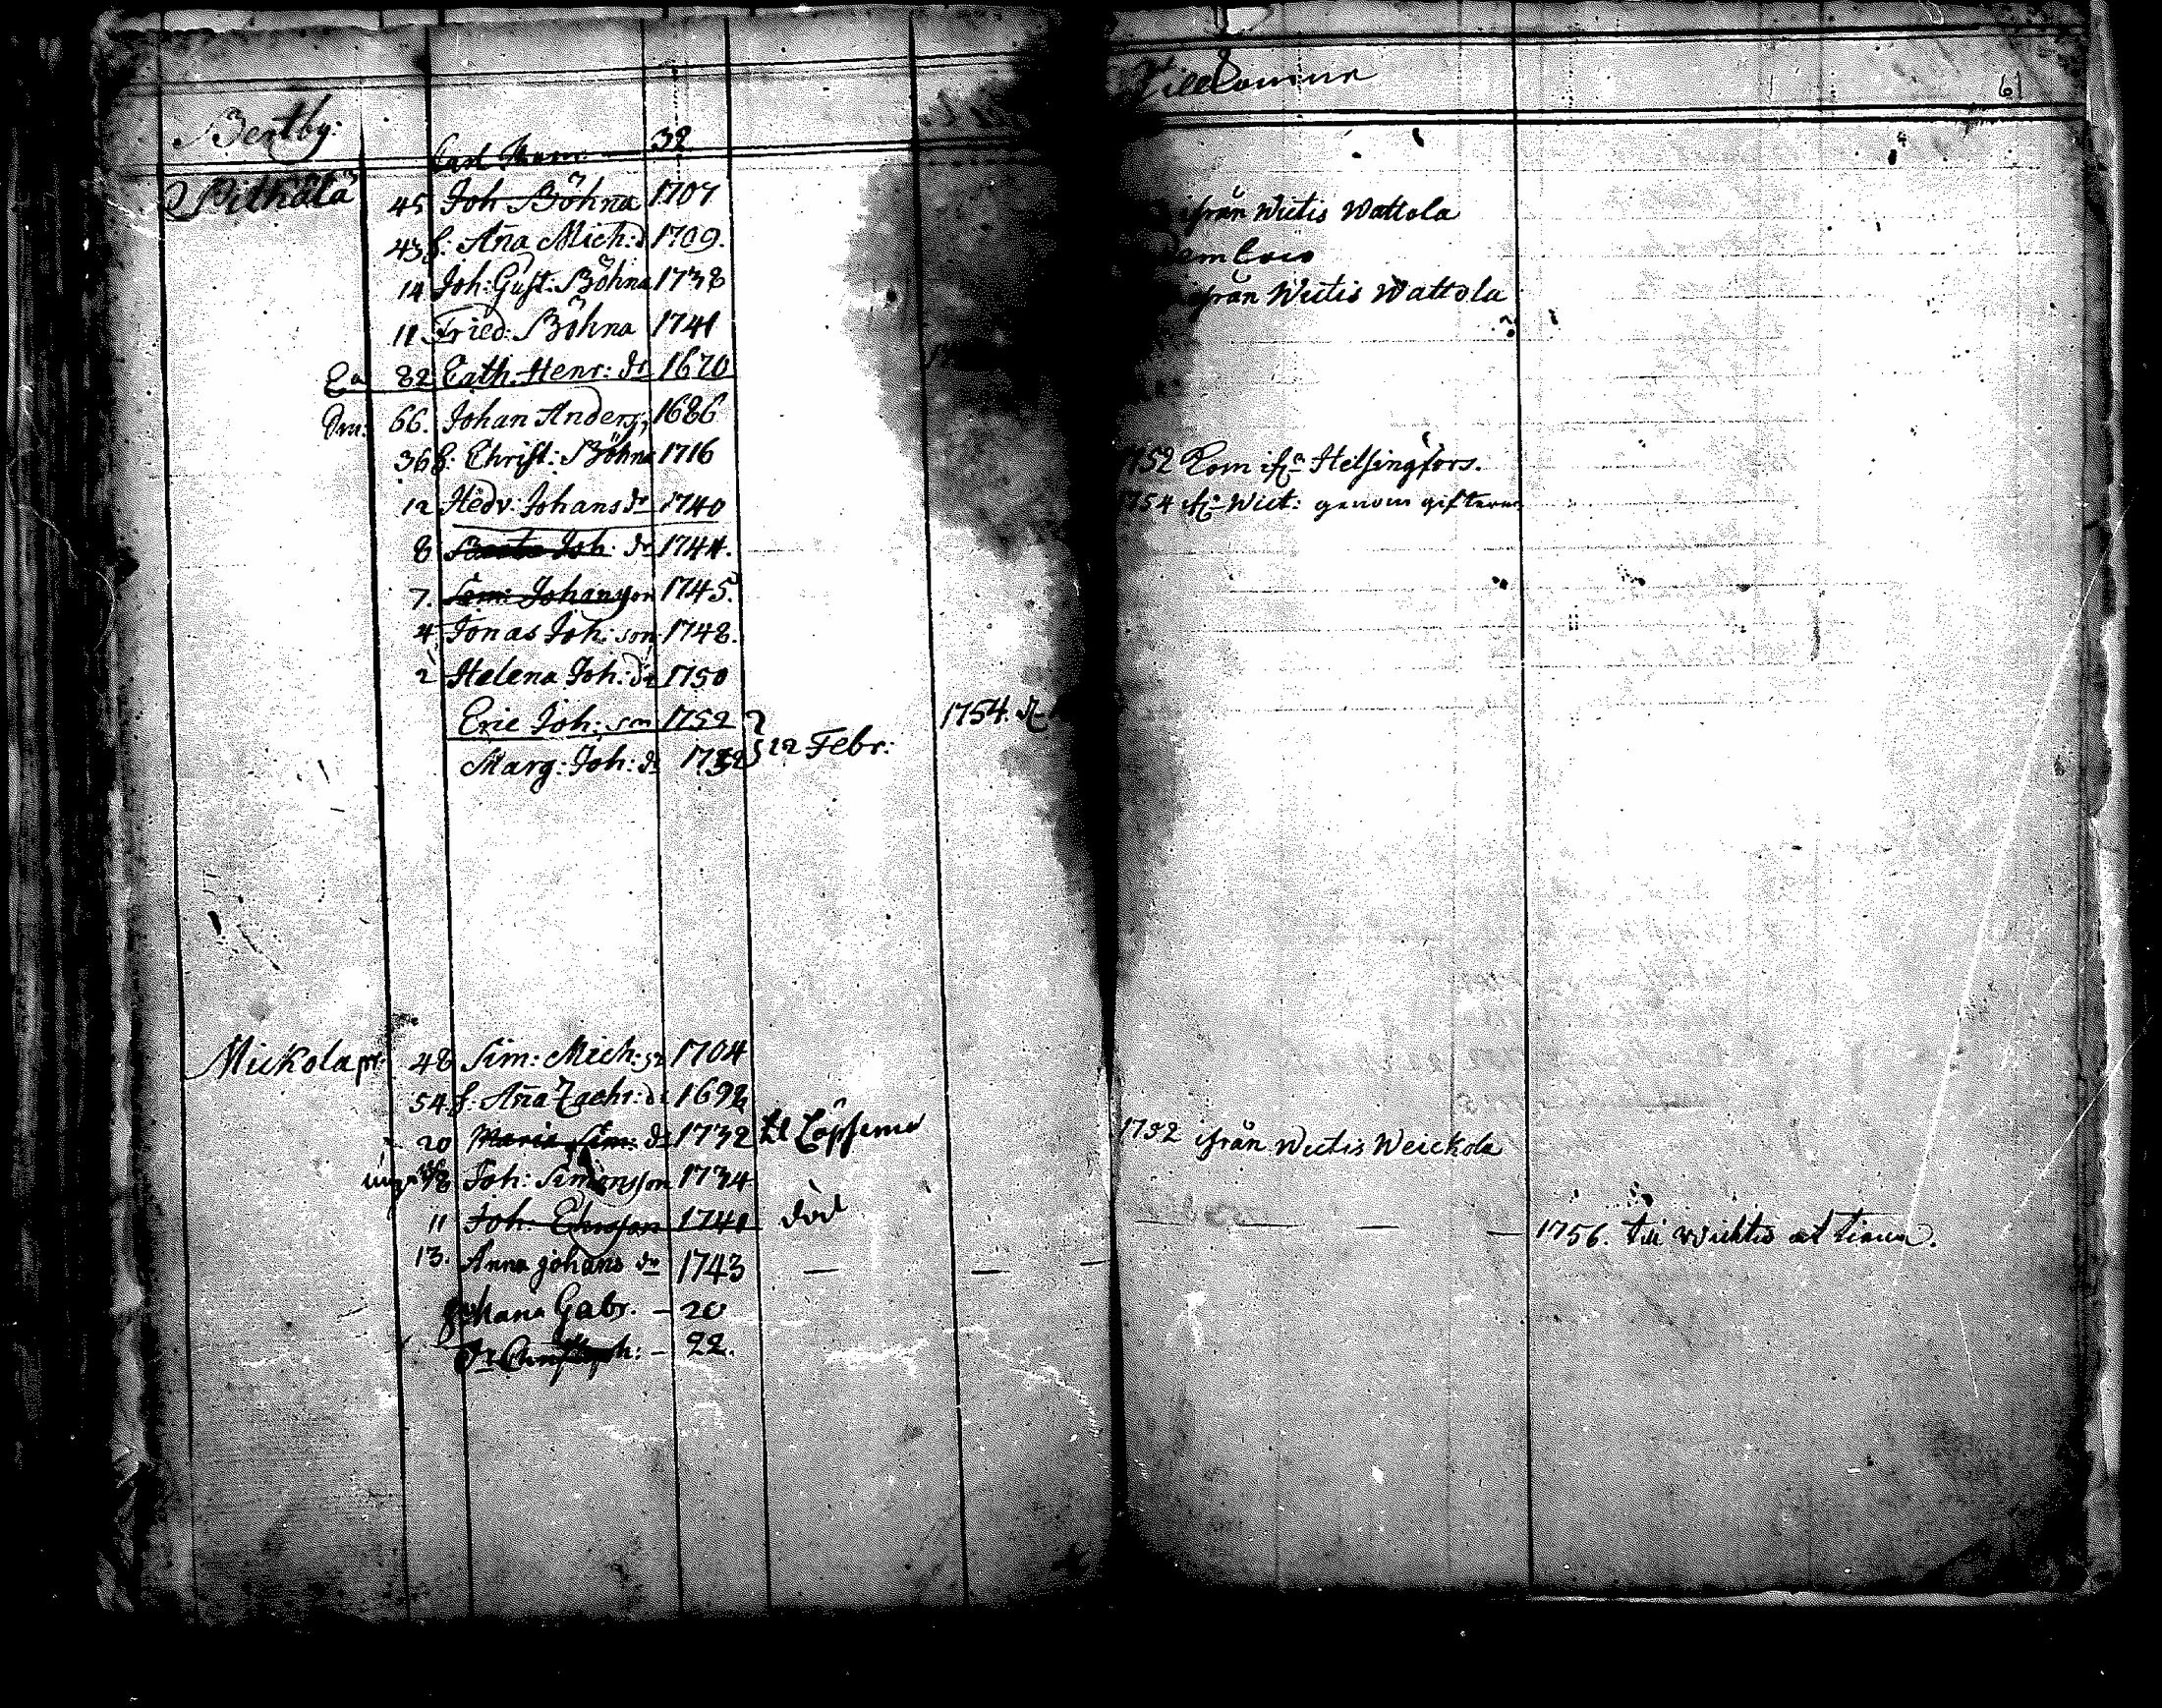 Tillkomne
61
Bentby:
Carl 32
Pilkåla 45 Joh Böhna 1707 ifrån Wictis Wattola
43 h: Aña Mich: d 1709. loco
14 Joh: Gust: Böhna 1738 ifrån Wictis Wattola
11 Fried: Böhna 1741
82 Cath: Henr: dr 1670
66. Johan Anderss 1686
36 h: Christ: Böhna 1716 1752 Kom ifrn Helsingfors.
12 Hedv: Johans dr 1740 1754 ifrn Wict: genom giftermå
8 Joh: dr 1744.
7. Sim: Johansson 1745.
4 Jonas Joh: son 1748.
2 Helena Joh: dr 1750
Eric Joh: son 1752 1754.
Marg: Joh: dr 1752 12 Febr:
Mickola 48 Sim: Mich: sn 1704
54 h: Aña Zachr: dr 1698
20 Maria Sim: dr 1732 1752 ifrån Wictis Weickola
18 Joh: Simonsson 1734
11 Joh: 1741 död
13. Anna Johans dr 1743 — — — 1756. till Wichtis at tiena.
Johana Gabr. – 20
– 22.